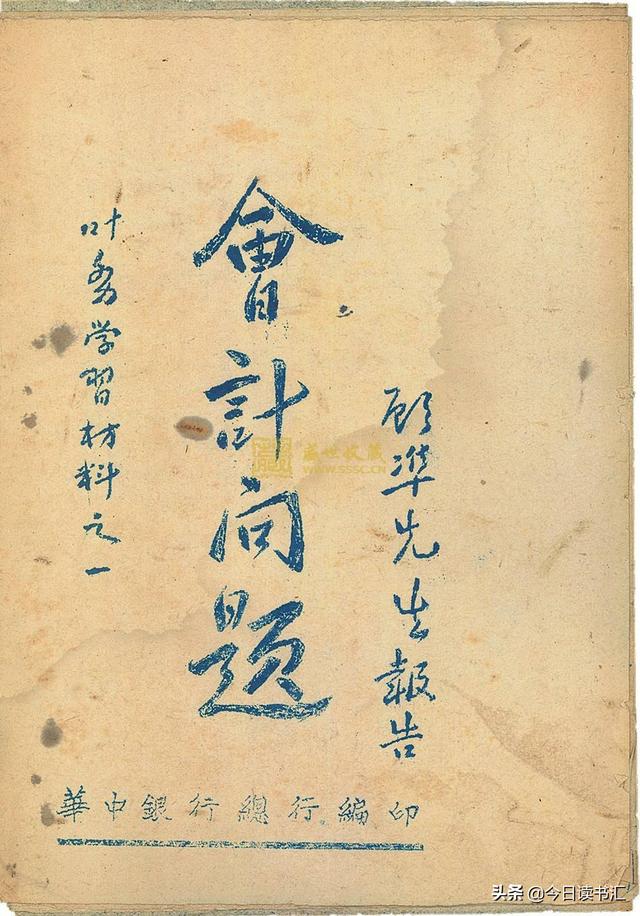 顾準先生報告
會計问题
叶务学習材料之一
華中銀行總行編印
盛世收藏
WWW.SSSC.CN
头条 @今日读书汇